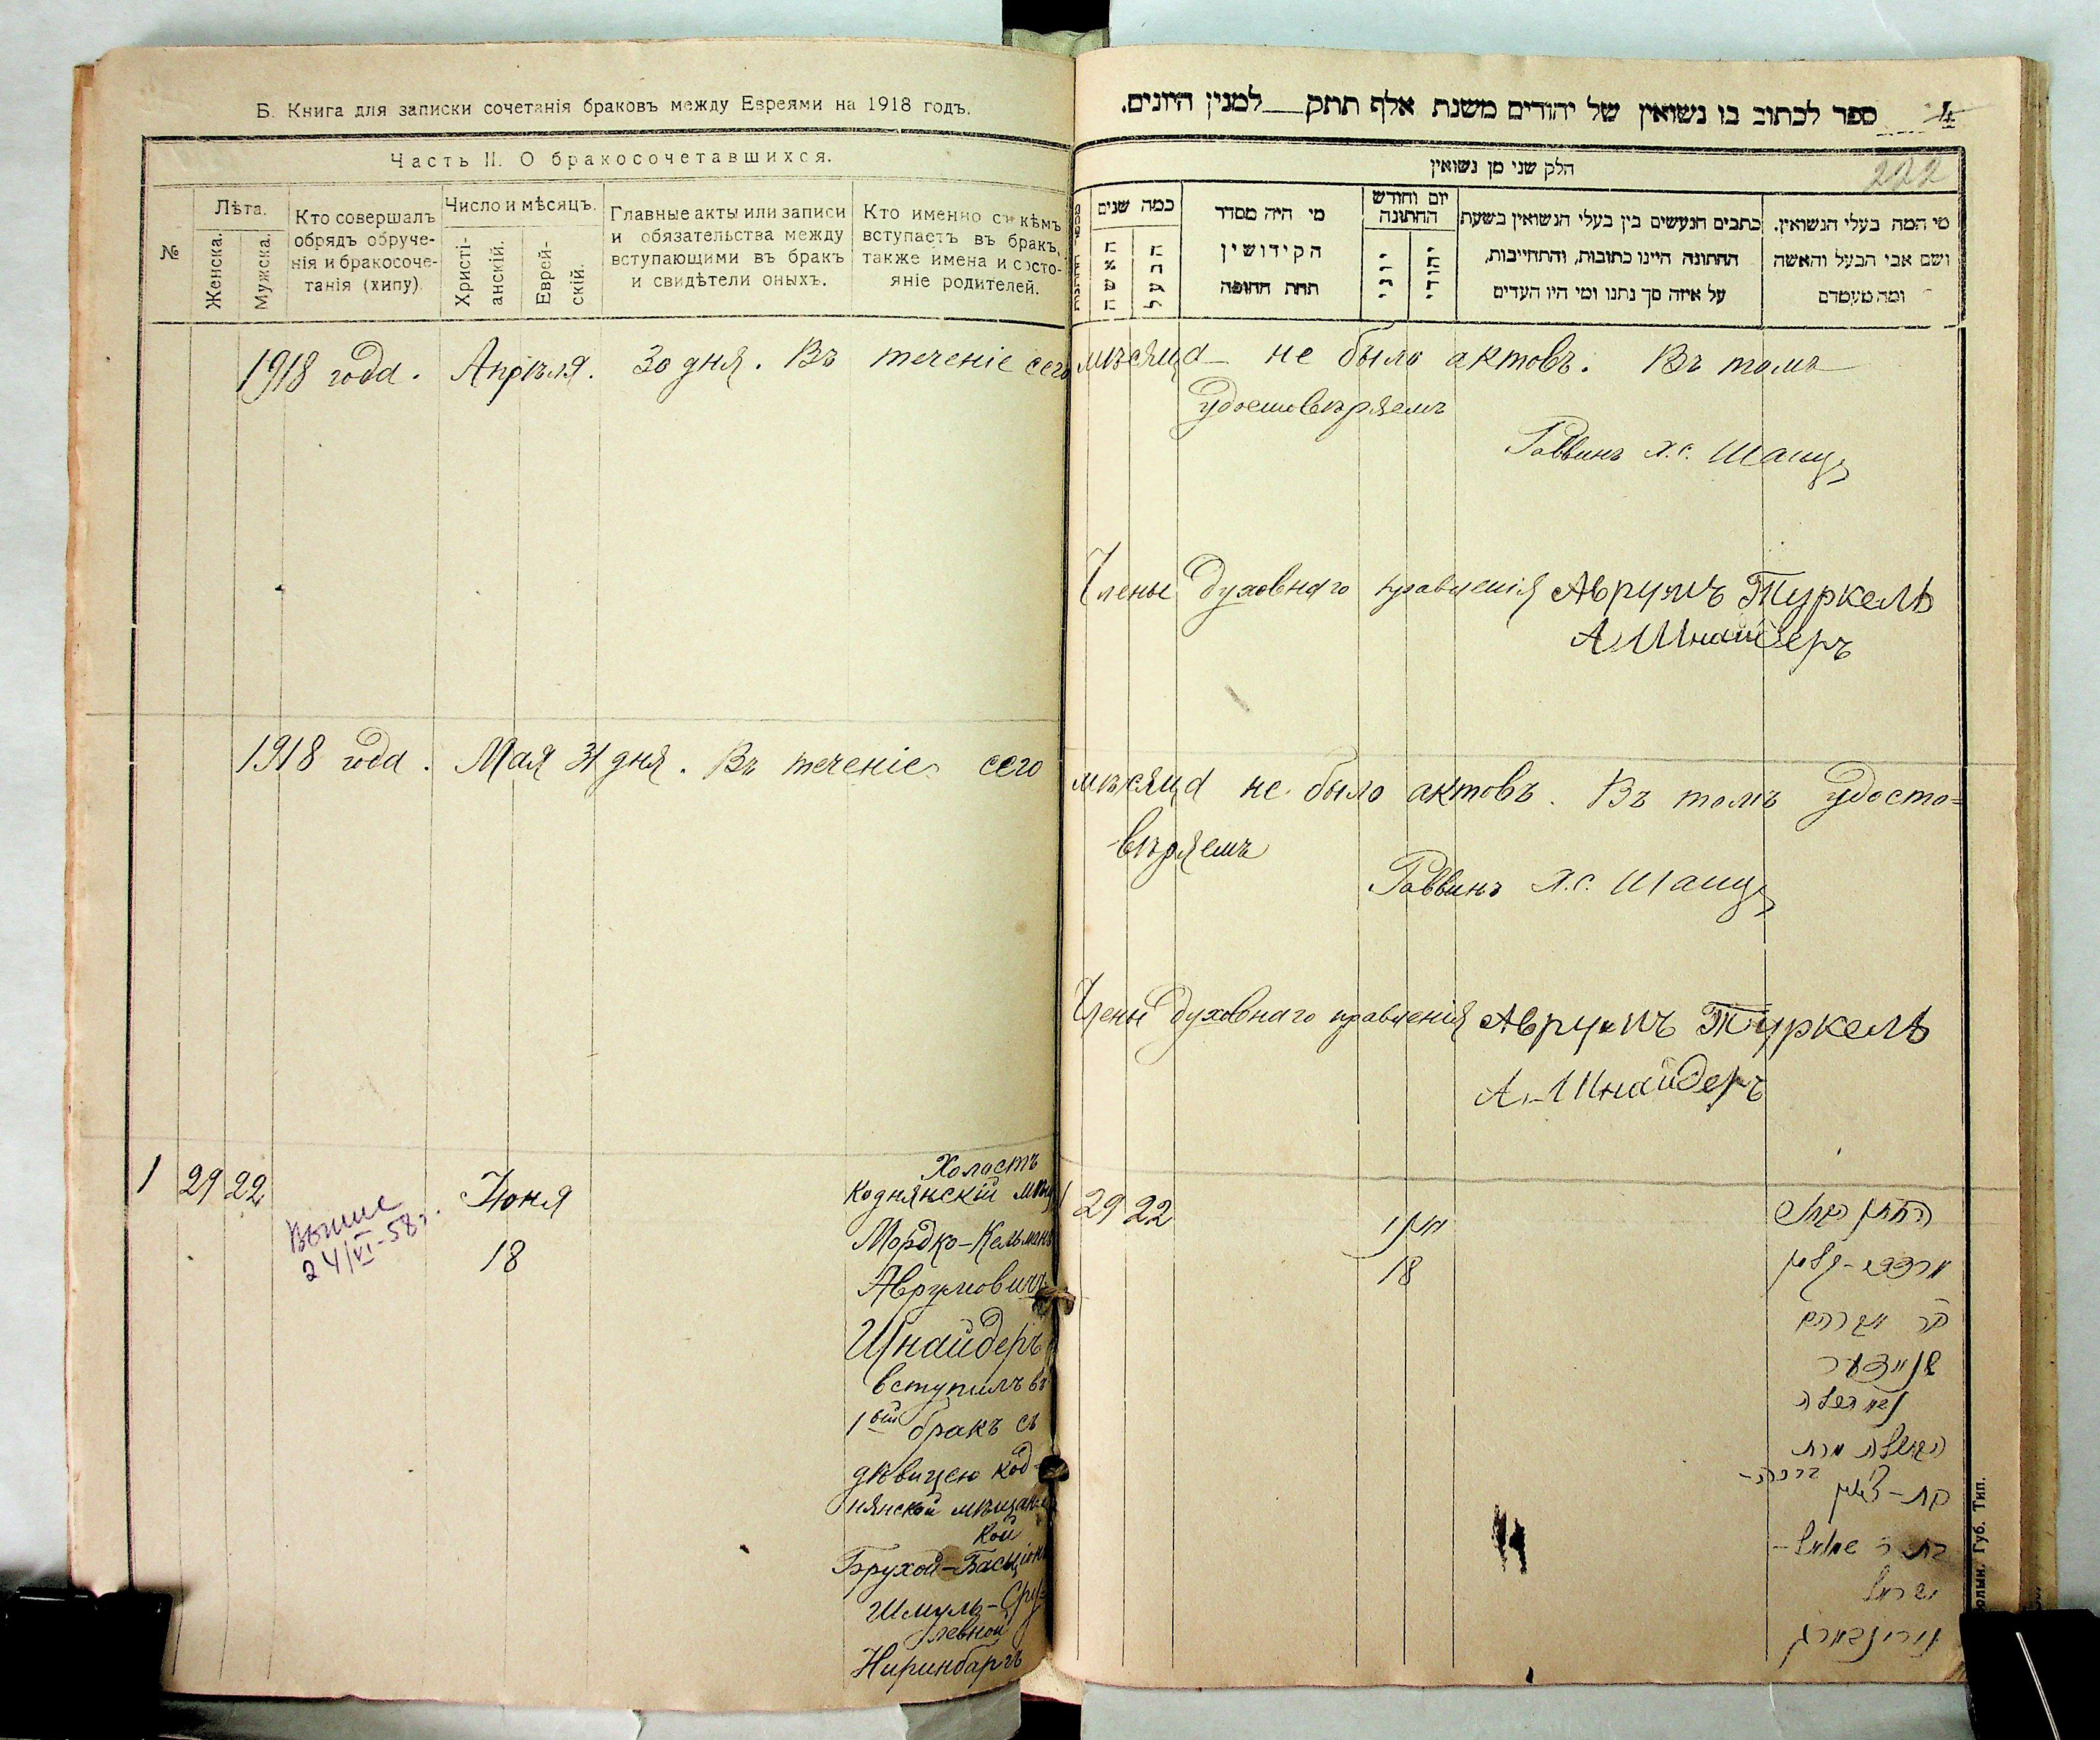 Б. Книга для записки сочетанія браковъ между Евреями на 1918 годъ.
Часть II. О бракосочетавшихся.
№
Лѣта.
Женска.
Мужска.
Кто совершалъ
обрядъ обруче-
нія и бракосоче-
танія (хипу)
Число и мѣсяцъ.
Христі-
анскій.
Еврей-
скій.
Главные акты или записи
и обязательства между
вступающими въ бракъ
и свидѣтели оныхъ.
Кто именно съ кѣмъ
вступаетъ въ бракъ,
также имена и состо-
яніе родителей.
1918 года. Апрѣля. 30 дня. Въ теченіе сего
1918 года. Мая 31 дня. Въ теченіе сего
1 29 22
Выпис
24/VI-58г.
Іюня
18
Холостъ
Коднянскій мѣщ
Мордко-Кельменъ
Аврумовичъ
Шнайдеръ
вступилъ въ
1ый бракъ съ
дѣвицею Код-
нянской мѣщан
кой
Брухой-Бас
Шмуль-Сру-
левной
Ниринбаргъ
ספר לכתוב בו נשואין של יהודים משנת אלף תתק למנין היונים.
4
222
חלק שני מן נשואין
כמה שנים
האשה
הבעל
מי היה מסדר
הקידושין
תחת החופה
יום וחודש
החתונה
יוני
יהודי
כתבים הנעשים בין בעלי הנשואין בשעת
החתונה היינו כתובות, והתחייבות,
על איזה סך נתנו ומי היו העדים
מי המה בעלי הנשואין.
ושם אבי הבעל והאשה
ומה מעמדם
мѣсяца не было актовъ. Въ томъ
удостовѣряемъ
Раввинъ Я.С. Шапиръ
Члены духовнаго правленія Аврумъ Туркель
А Шнайдеръ
мѣсяца не было актовъ. Въ томъ удосто-
вѣряемъ
Раввинъ Я.С. Шапиръ
Члены духовнаго правленія Аврумъ Туркель
А. Шнайдеръ
29 22
יוני
18
החתן הבחור
מרדכי-קלמן
בר אברהם
שניידער
הבתולה מרת
ברכה-
בת ר שמואל-
ישראל
נירינבארג
Губ. Тип.